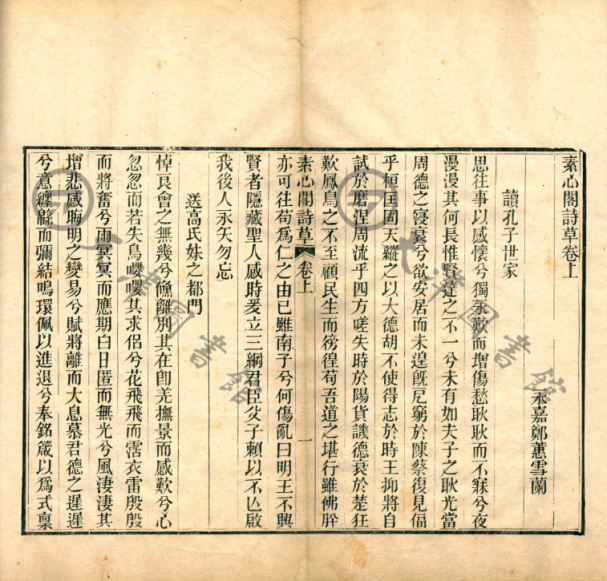 素心閣詩草卷上
永嘉鄭蕙雪蘭
讀孔子世家
思往事以感懷兮獨永歎而增傷愁耿耿而不寐兮夜
漫漫其何長惟賢達之不一兮未有如夫子之耿光當
周德之寖衰兮欲安居而未遑旣尼窮於陳蔡復見偪
乎桓匡固天縱之以大德胡不使得志於時王抑將自
試於磨涅周流乎四方嗟失時於陽貨譏德衰於楚狂
歎鳳鳥之不至顧民生而徬徨苟吾道之堪行雖佛肸
素心閣詩草 卷上 一
亦可往苟爲仁之由己雖南子兮何傷亂曰明王不興
賢者隱藏聖人感時爰立三綱君臣父子賴以不亾啟
我後人永矢勿忘
送高氏妹之都門
悼良會之無幾兮儵離別其在卽羌撫景而感歎兮心
忽忽而若失鳥嚶嚶其求侶兮花飛飛而霑衣雷殷殷
而將奮兮雨冥冥而應期白日匿而無光兮風淒淒其
增悲感晦明之變易兮賦將離而大息慕君德之遲遲
兮意纏緜而彌結鳴環佩以進退兮奉銘箴以爲式稟
天津圖書館